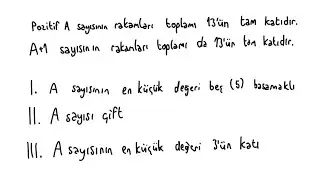 Pozitif A sayısının rakamları toplamı 13'ün tam katıdır.
A+1 sayısının rakamları toplamı da 13'ün tam katıdır.
I. A sayısının en küçük değeri beş (5) basamaklı
II. A sayısı çift
III. A sayısının en küçük değeri 3'ün katı